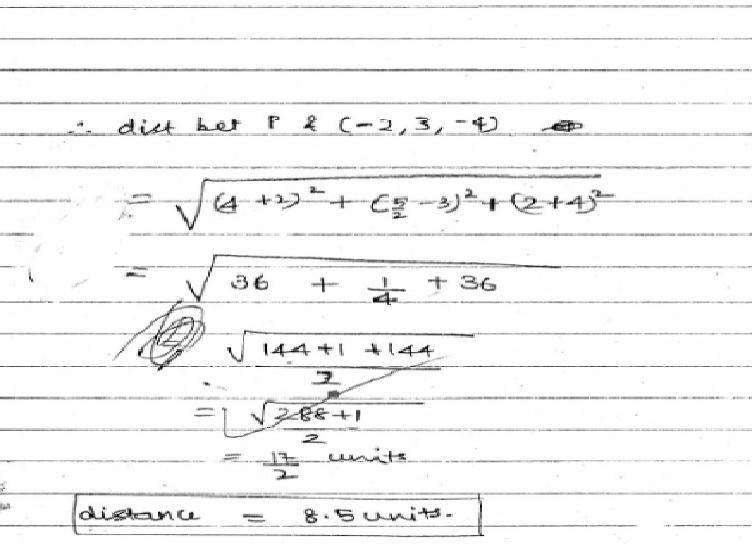 ∴ dist bet P & (-2, 3, -4)
= √((4 +2)² + (5/2 -3)² + (2+4)²)
= √(36 + 1/4 + 36)
√(144 +1 +144) / 2
= √(288+1) / 2
= 17/2 units
distance = 8.5 units.